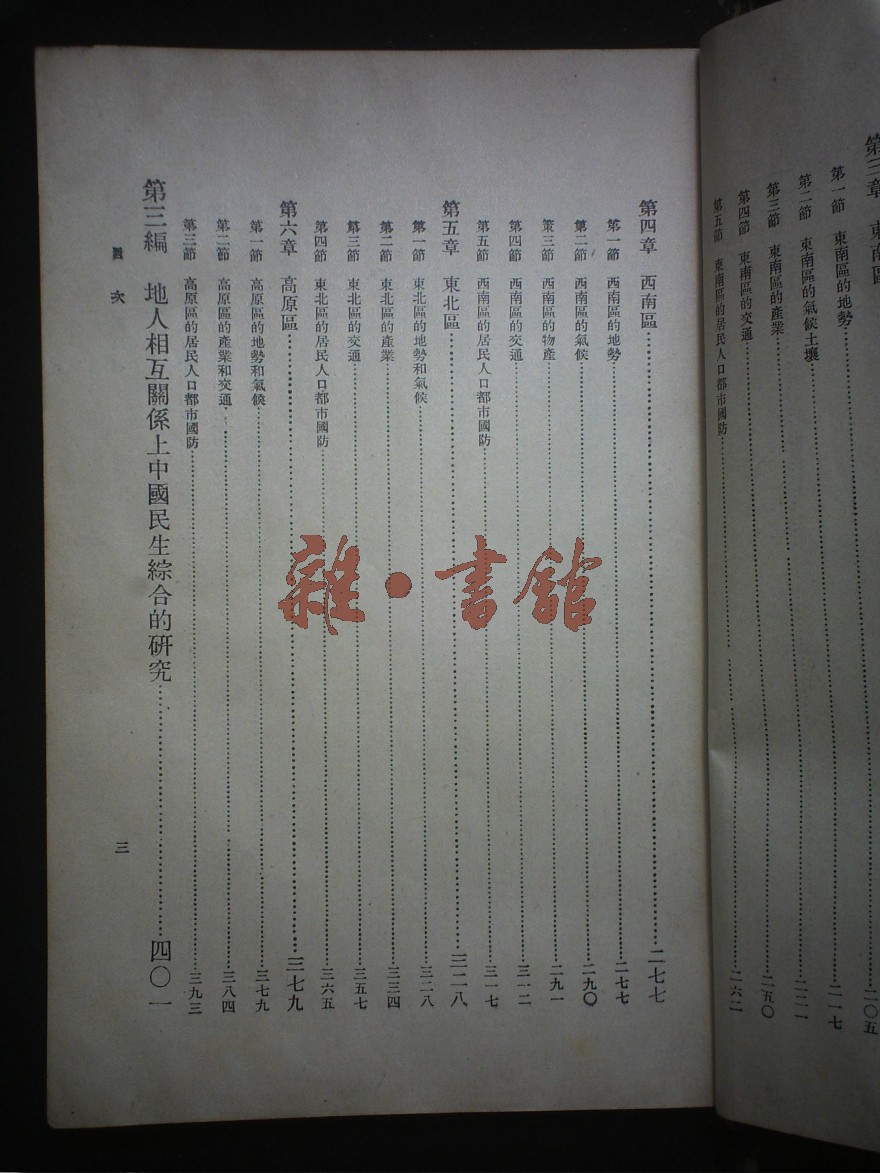 第三章 東南區 二〇五
第一節 東南區的地勢 二一七
第二節 東南區的氣候土壤
第三節 東南區的產業 二五〇
第四節 東南區的交通 二六二
第五節 東南區的居民人口都市國防
第四章 西南區 二七七
第一節 西南區的地勢 二七七
第二節 西南區的氣候 二九〇
第三節 西南區的物產 二九一
第四節 西南區的交通 三一二
第五節 西南區的居民人口都市國防 三一七
第五章 東北區 三二八
第一節 東北區的地勢和氣候 三二八
第二節 東北區的產業 三三四
第三節 東北區的交通 三五七
第四節 東北區的居民人口都市國防 三六五
第六章 高原區 三七九
第一節 高原區的地勢和氣候 三七九
第二節 高原區的產業和交通 三八四
第三節 高原區的居民人口都市國防 三九三
第三編 地人相互關係上中國民生綜合的研究 四〇一
目次 三
雜·書館